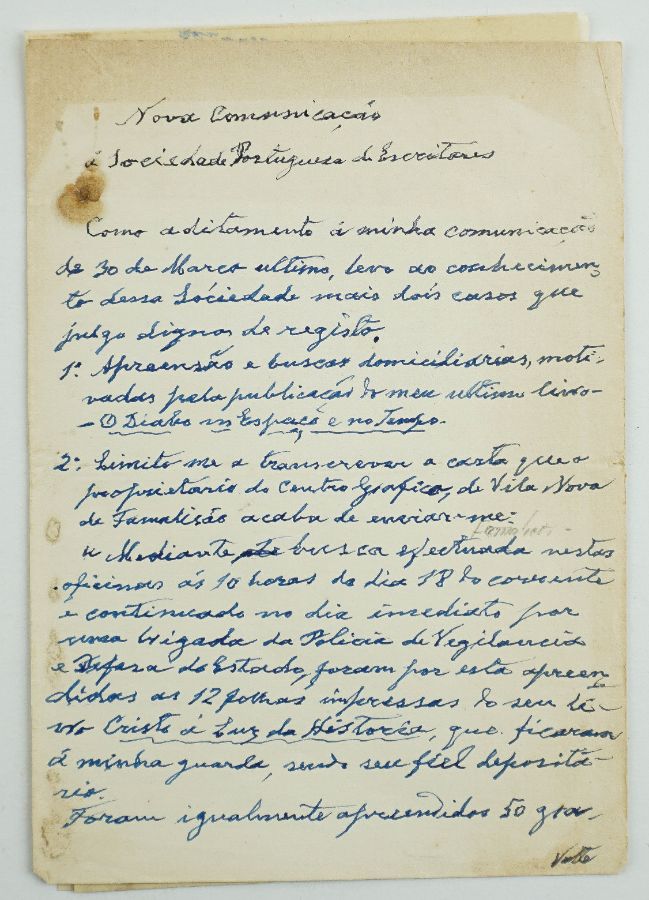 Nova Comunicação
á Sociedade Portuguesa de Escritores
Como aditamento á minha comunicação
de 30 de Março ultimo, levo ao conhecimen-
to dessa Sociedade mais dois casos que
julgo dignos de registo.
1º Apreensão e buscas domiciliarias, moti-
vadas pela publicação do meu ultimo livro-
- O Diabo no Espaço e no Tempo.
2º Limito me a transcrever a carta que o
proprietario do Centro Grafico, de Vila Nova
de Famalicão acaba de enviar-me:
" Mediante busca efectuada nestas
oficinas ás 10 horas do dia 18 do corrente
e continuado no dia imediato por
uma brigada da Policia de Vegilancia
e Defesa do Estado, foram por esta apreen-
didas as 12 folhas impressas do seu li-
vro Cristo á Luz da Historia, que ficaram
á minha guarda, sendo seu fiel deposita-
rio.
Foram igualmente apreendidos 50 gra-
Volte